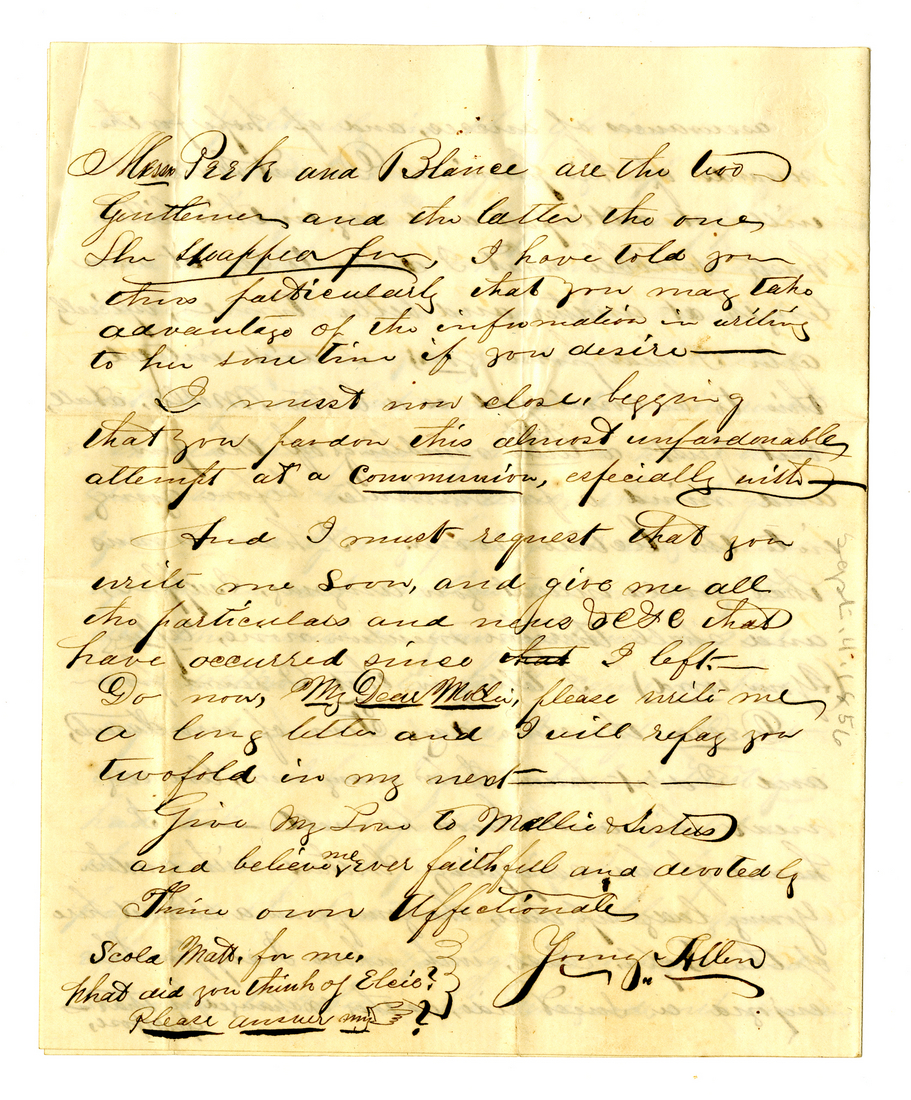 Messrs Peek and Blance are the two
Gentlemen and the latter the one
She swapped for, I have told you
thus particularly that you may take
advantage of the information in writing
to her some time if you desire —
I must now close, begging
that you pardon this almost unpardonable
attempt at a communion, especially with —
And I must request that you
write me soon, and give me all
the particulars and news &c&c that
have occurred since that I left. —
Do now, My Dear Mollie, please write me
a long letter and I will repay you
twofold in my next — —
Give My Love to Mollie & Sisters
and believe me ever faithfull and devotedly
Thine own Affectionate
Young J. Allen
Scold Matt. for me.
What did you think of Elcie?
Please answer my ?
Sept. 4. 1856